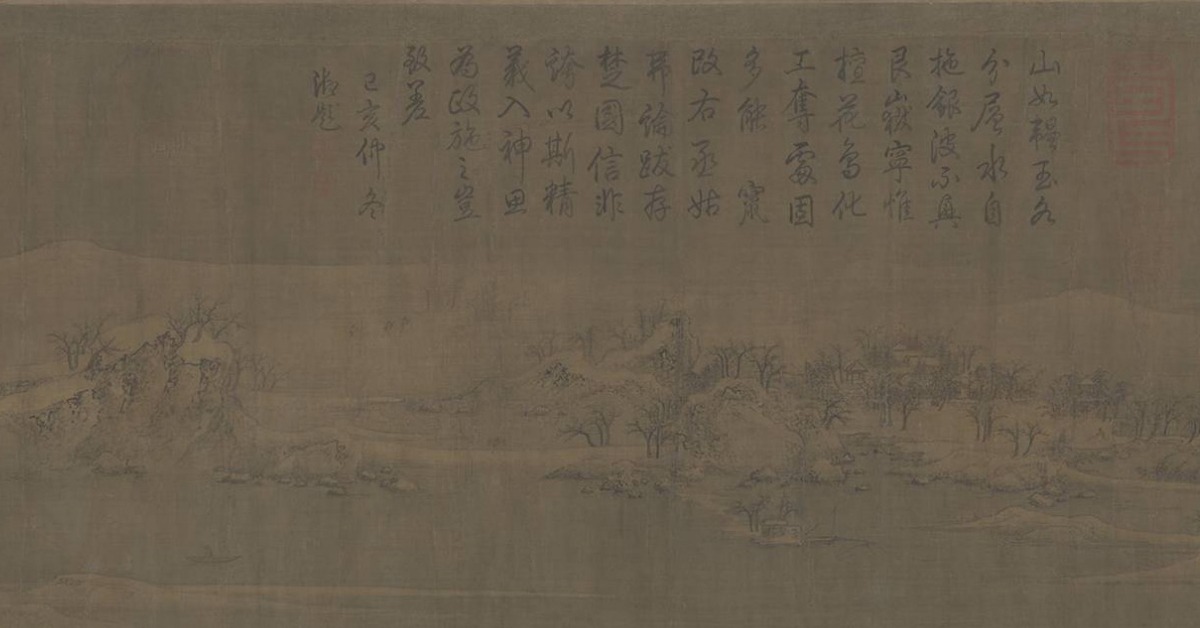 山如韞玉各
分層水自
拖銀波不興
艮嶽寧惟
擅花鳥化
工奪處固
多能 竄
改右丞姑
弗論跋存
楚國信非
誇以斯精
義入神思
為政施之豈
致差
己亥仲冬
御題